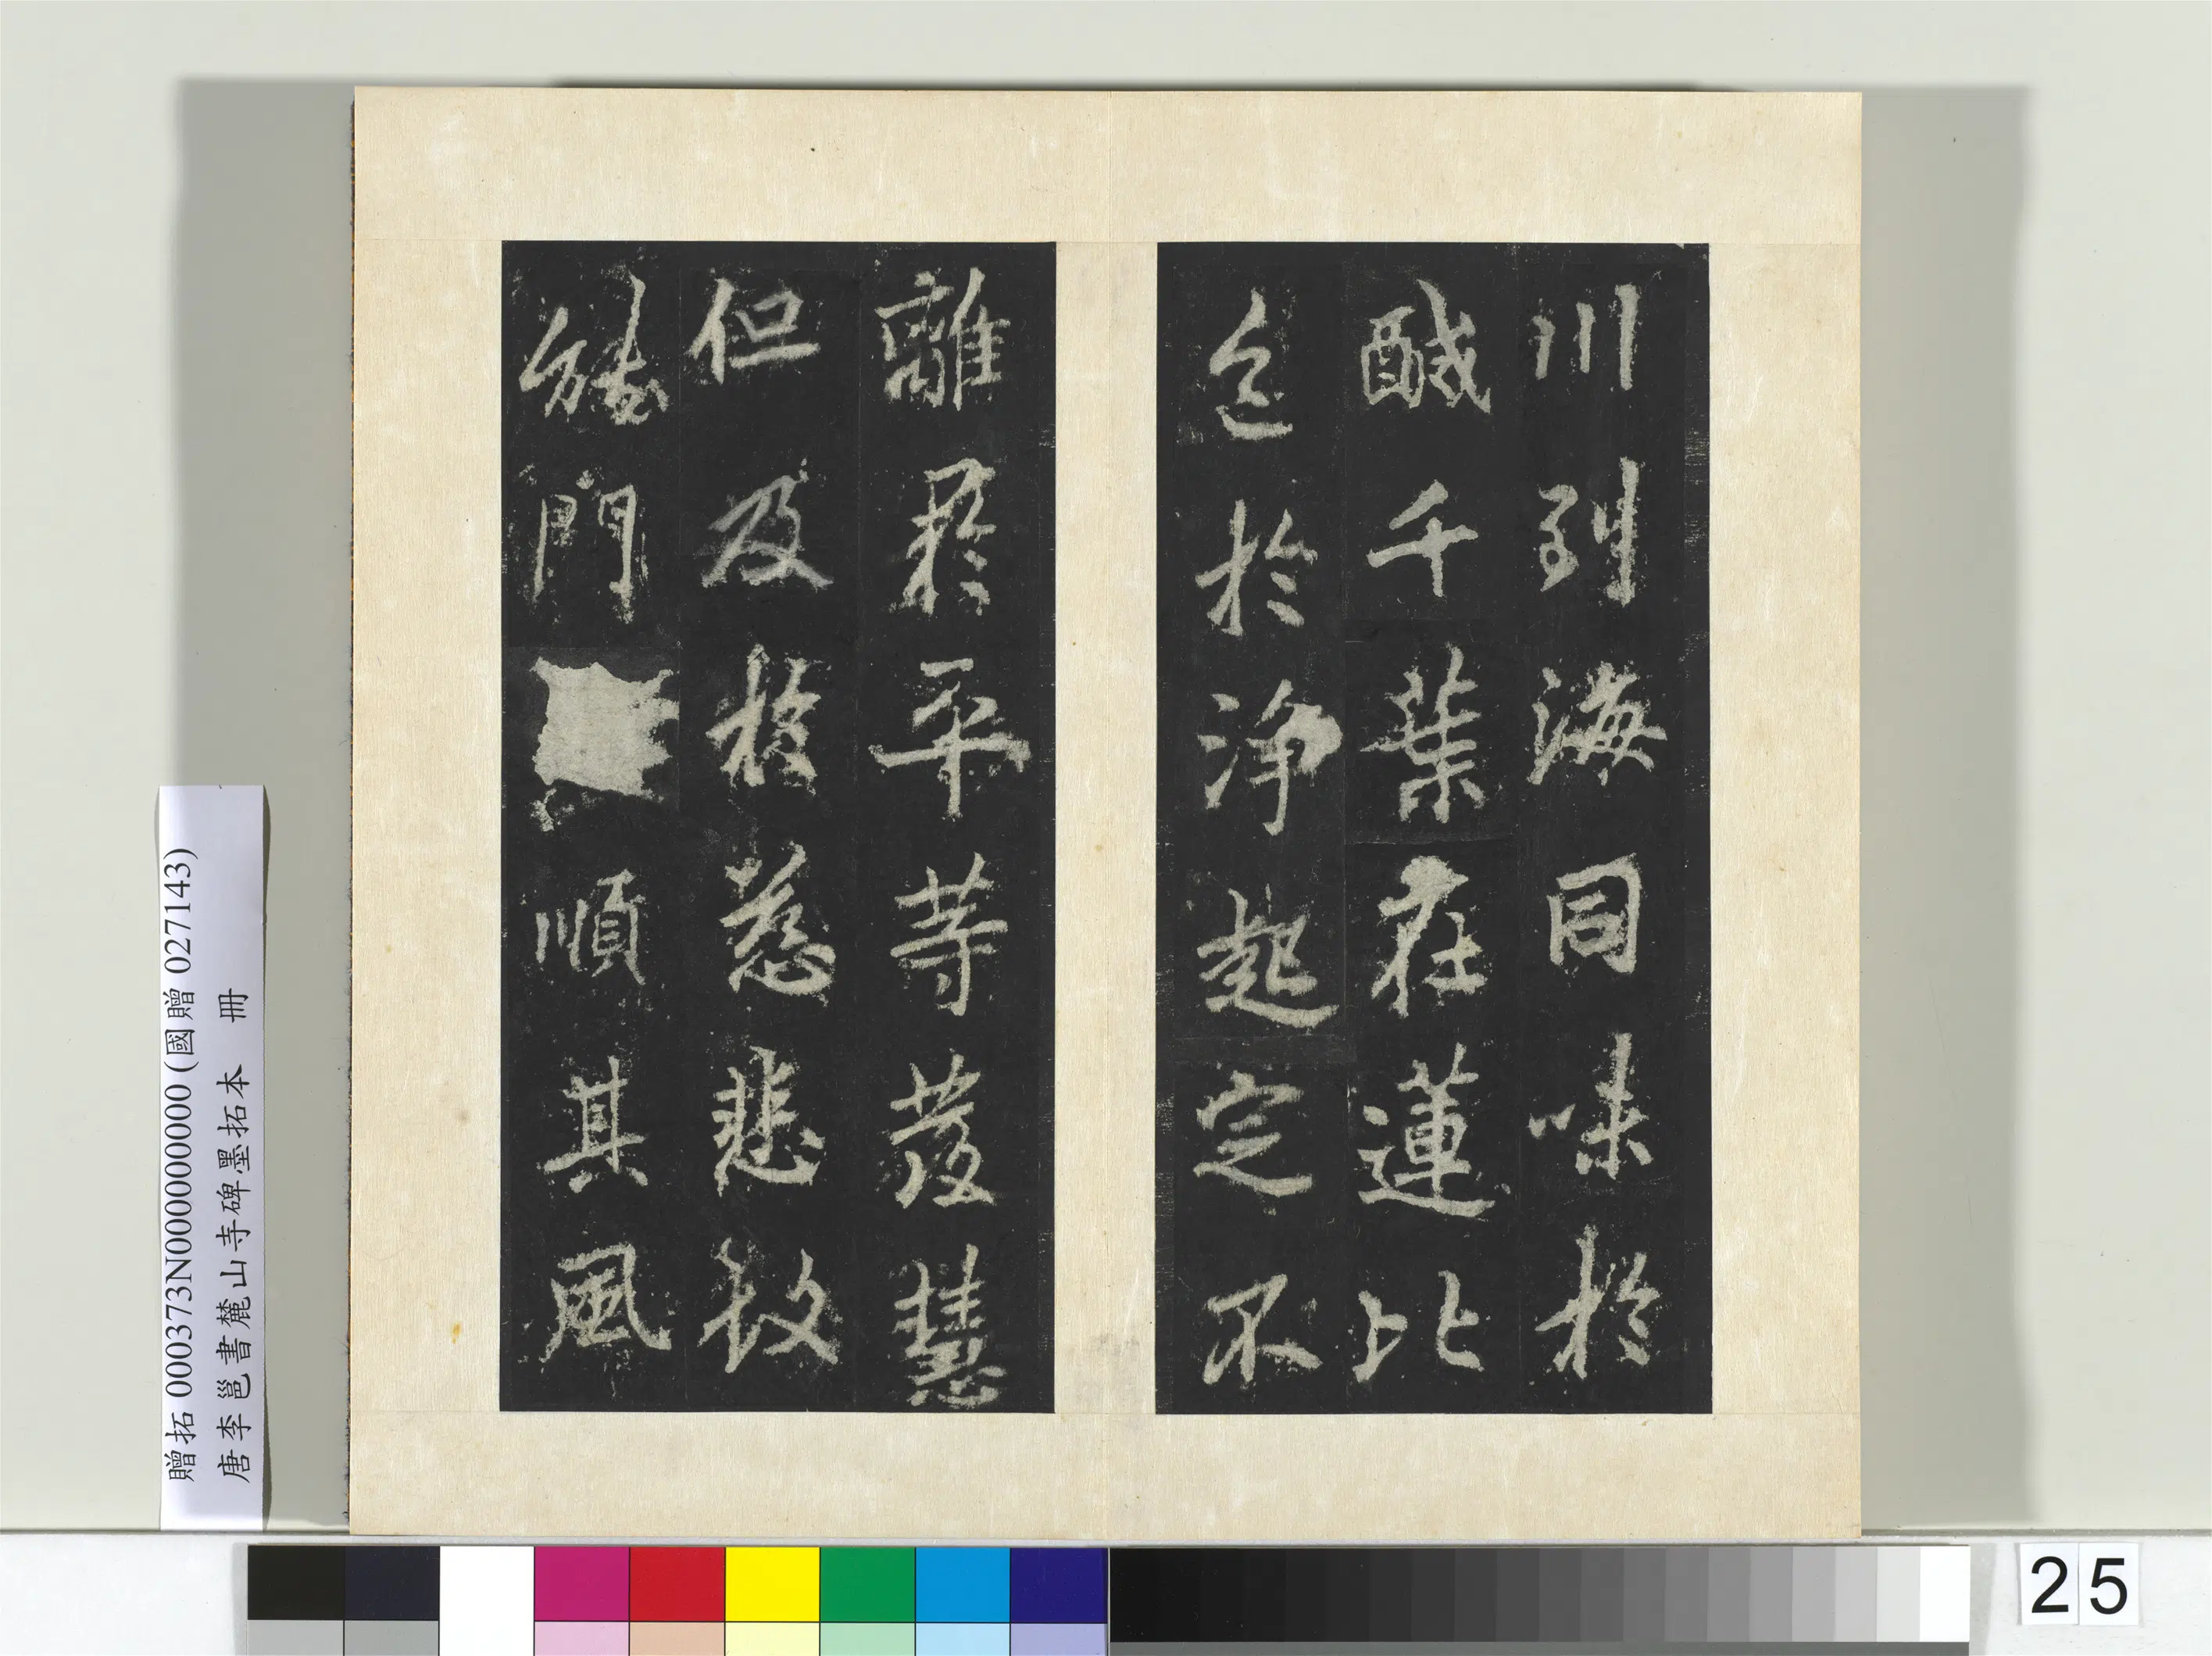 川到海同味於
醎千葉在蓮比
色於淨起定不
離於平等發慧
但及於慈悲
能門順其風
贈拓 000373N000000000 (國贈 027143)
唐李邕書麓山寺碑墨拓本 冊
25